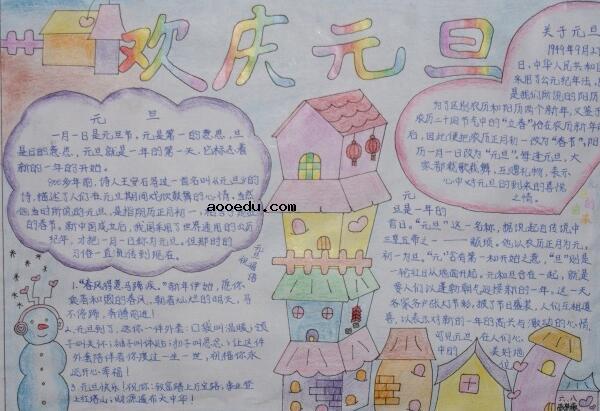 欢庆元旦
元 旦
一月一日是元旦节,元是第一的意思,旦
是日的意思,元旦就是一年的第一天,它标志着
新的一年的开始。
诗,描述了人们在元旦期间戏欣鼓舞的心情。当然
aooedu.com
百节。新中国成立后,我国采用了世界通用的公历
纪年,才把一月一日称为元旦。但那时的
习俗一直流传到现在。
元旦祝福语
1."春风得意马蹄疾。"新年伊始,愿你
乘着和煦的春风,朝着灿烂的明天,马
不停蹄,奔腾前进!
2.元旦到了,送你一件外套:口袋叫温暖;领
子叫关怀;袖子叫体贴;扣子叫思念;让这件
外套陪伴着你度过一生一世,祝福你永
远开心幸福!
关于元旦
1949年9月27
日,中华人民共和国
采用了公元纪年法,
是我们所说的阳历
为了区别农历和阳历两个新年,又鉴于
农历二十四节气中的"立春"恰在农历新年前
后,因此便把农历正月初一改为"春节",阳
历一月一日改为"元旦"。每逢元旦,大
家都载歌载舞,互赠礼物,表示
心中对元旦的到来的喜悦
之情。
元
旦是一年的
首日。"元旦"这一名称,据说起自传说中
三皇五帝之一——颛顼。他以农历正月为元,
初一为旦。"元"者有第一和开始之意,"旦"则是
一轮红日从地面升起。元和旦合在一起,就是
要人们以蓬勃朝气迎接新的一年。这一天
各家各户张大节彩,披了节日盛装,人们互相道
喜,以表示对新的一年的高兴与激动的心情。
可见元旦在人们心
中的
美好地
位
六.八